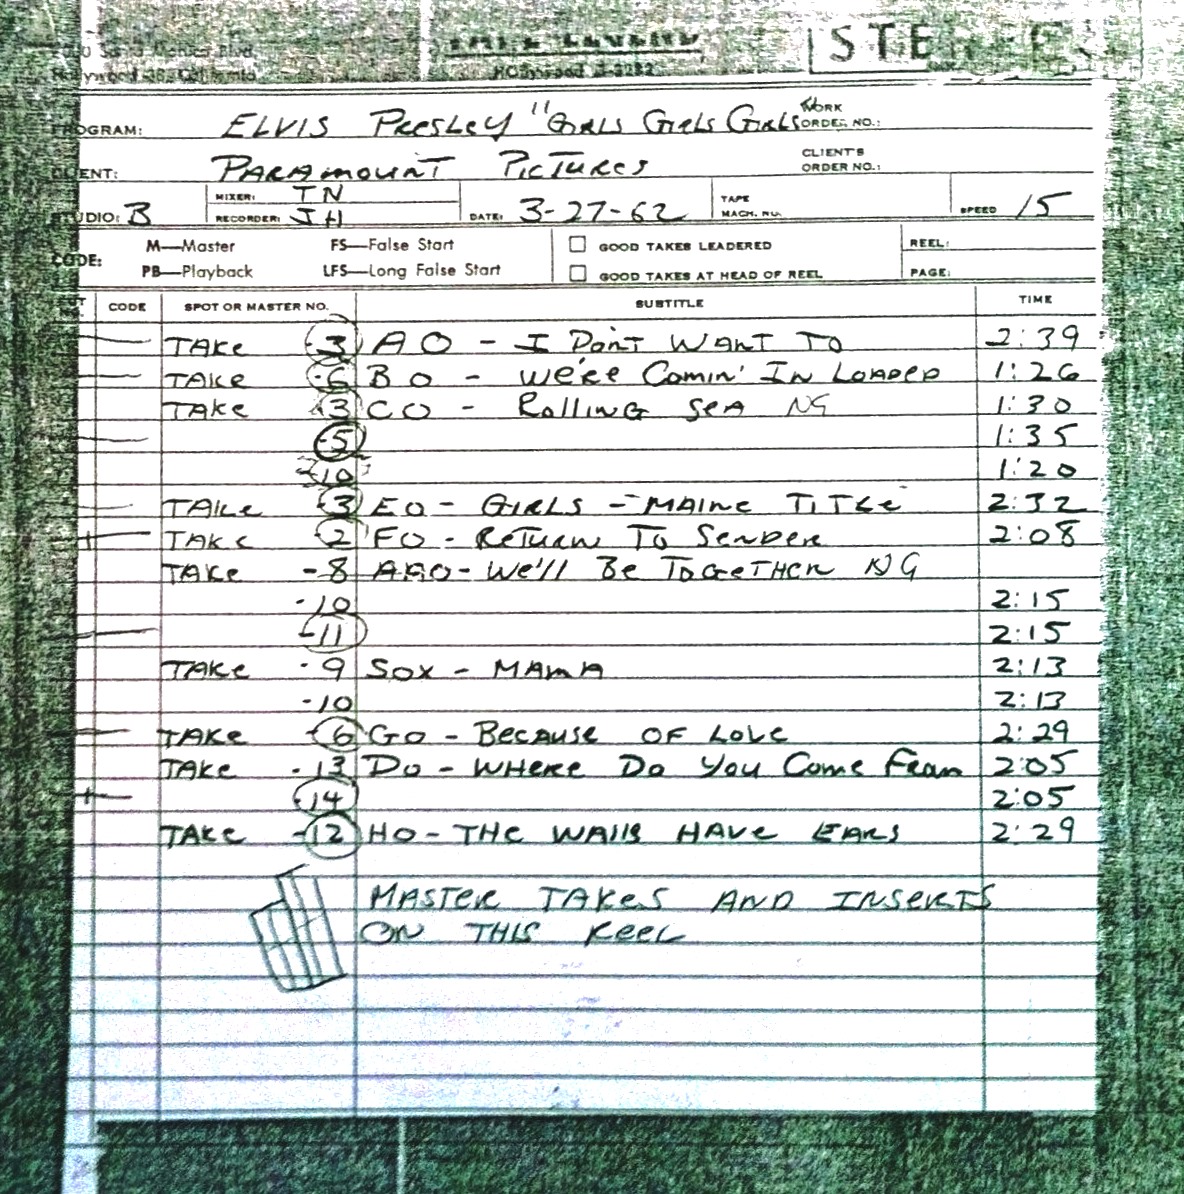 Hollywood 38, California
STE
PROGRAM: ELVIS PRESLEY "GIRLS GIRLS GIRLS WORK ORDER NO.:
CLIENT: PARAMOUNT PICTURES CLIENT'S ORDER NO.:
STUDIO: B MIXER: TN RECORDER: JH DATE: 3-27-62 TAPE MACH. NO. SPEED 15
CODE: M—Master FS—False Start GOOD TAKES LEADERED REEL:
PB—Playback LFS—Long False Start GOOD TAKES AT HEAD OF REEL PAGE:
CODE SPOT OR MASTER NO. SUBTITLE TIME
TAKE -3 AO - I DON'T WANT TO 2:39
TAKE -6 BO - WE'RE COMIN' IN LOADED 1:26
TAKE -3 CO - ROLLING SEA NG 1:30
-5 1:35
-10 1:20
TAKE -3 EO - GIRLS - MAINE TITLE 2:32
TAKE -2 FO - RETURN TO SENDER 2:08
TAKE -8 AAO - WE'LL BE TOGETHER NG
-10 2:15
-11 2:15
TAKE -9 SOX - MAMA 2:13
-10 2:13
TAKE -6 GO - BECAUSE OF LOVE 2:29
TAKE -13 DO - WHERE DO YOU COME FROM 2:05
-14 2:05
TAKE -12 HO - THE WALLS HAVE EARS 2:29
MASTER TAKES AND INSERTS
ON THIS REEL